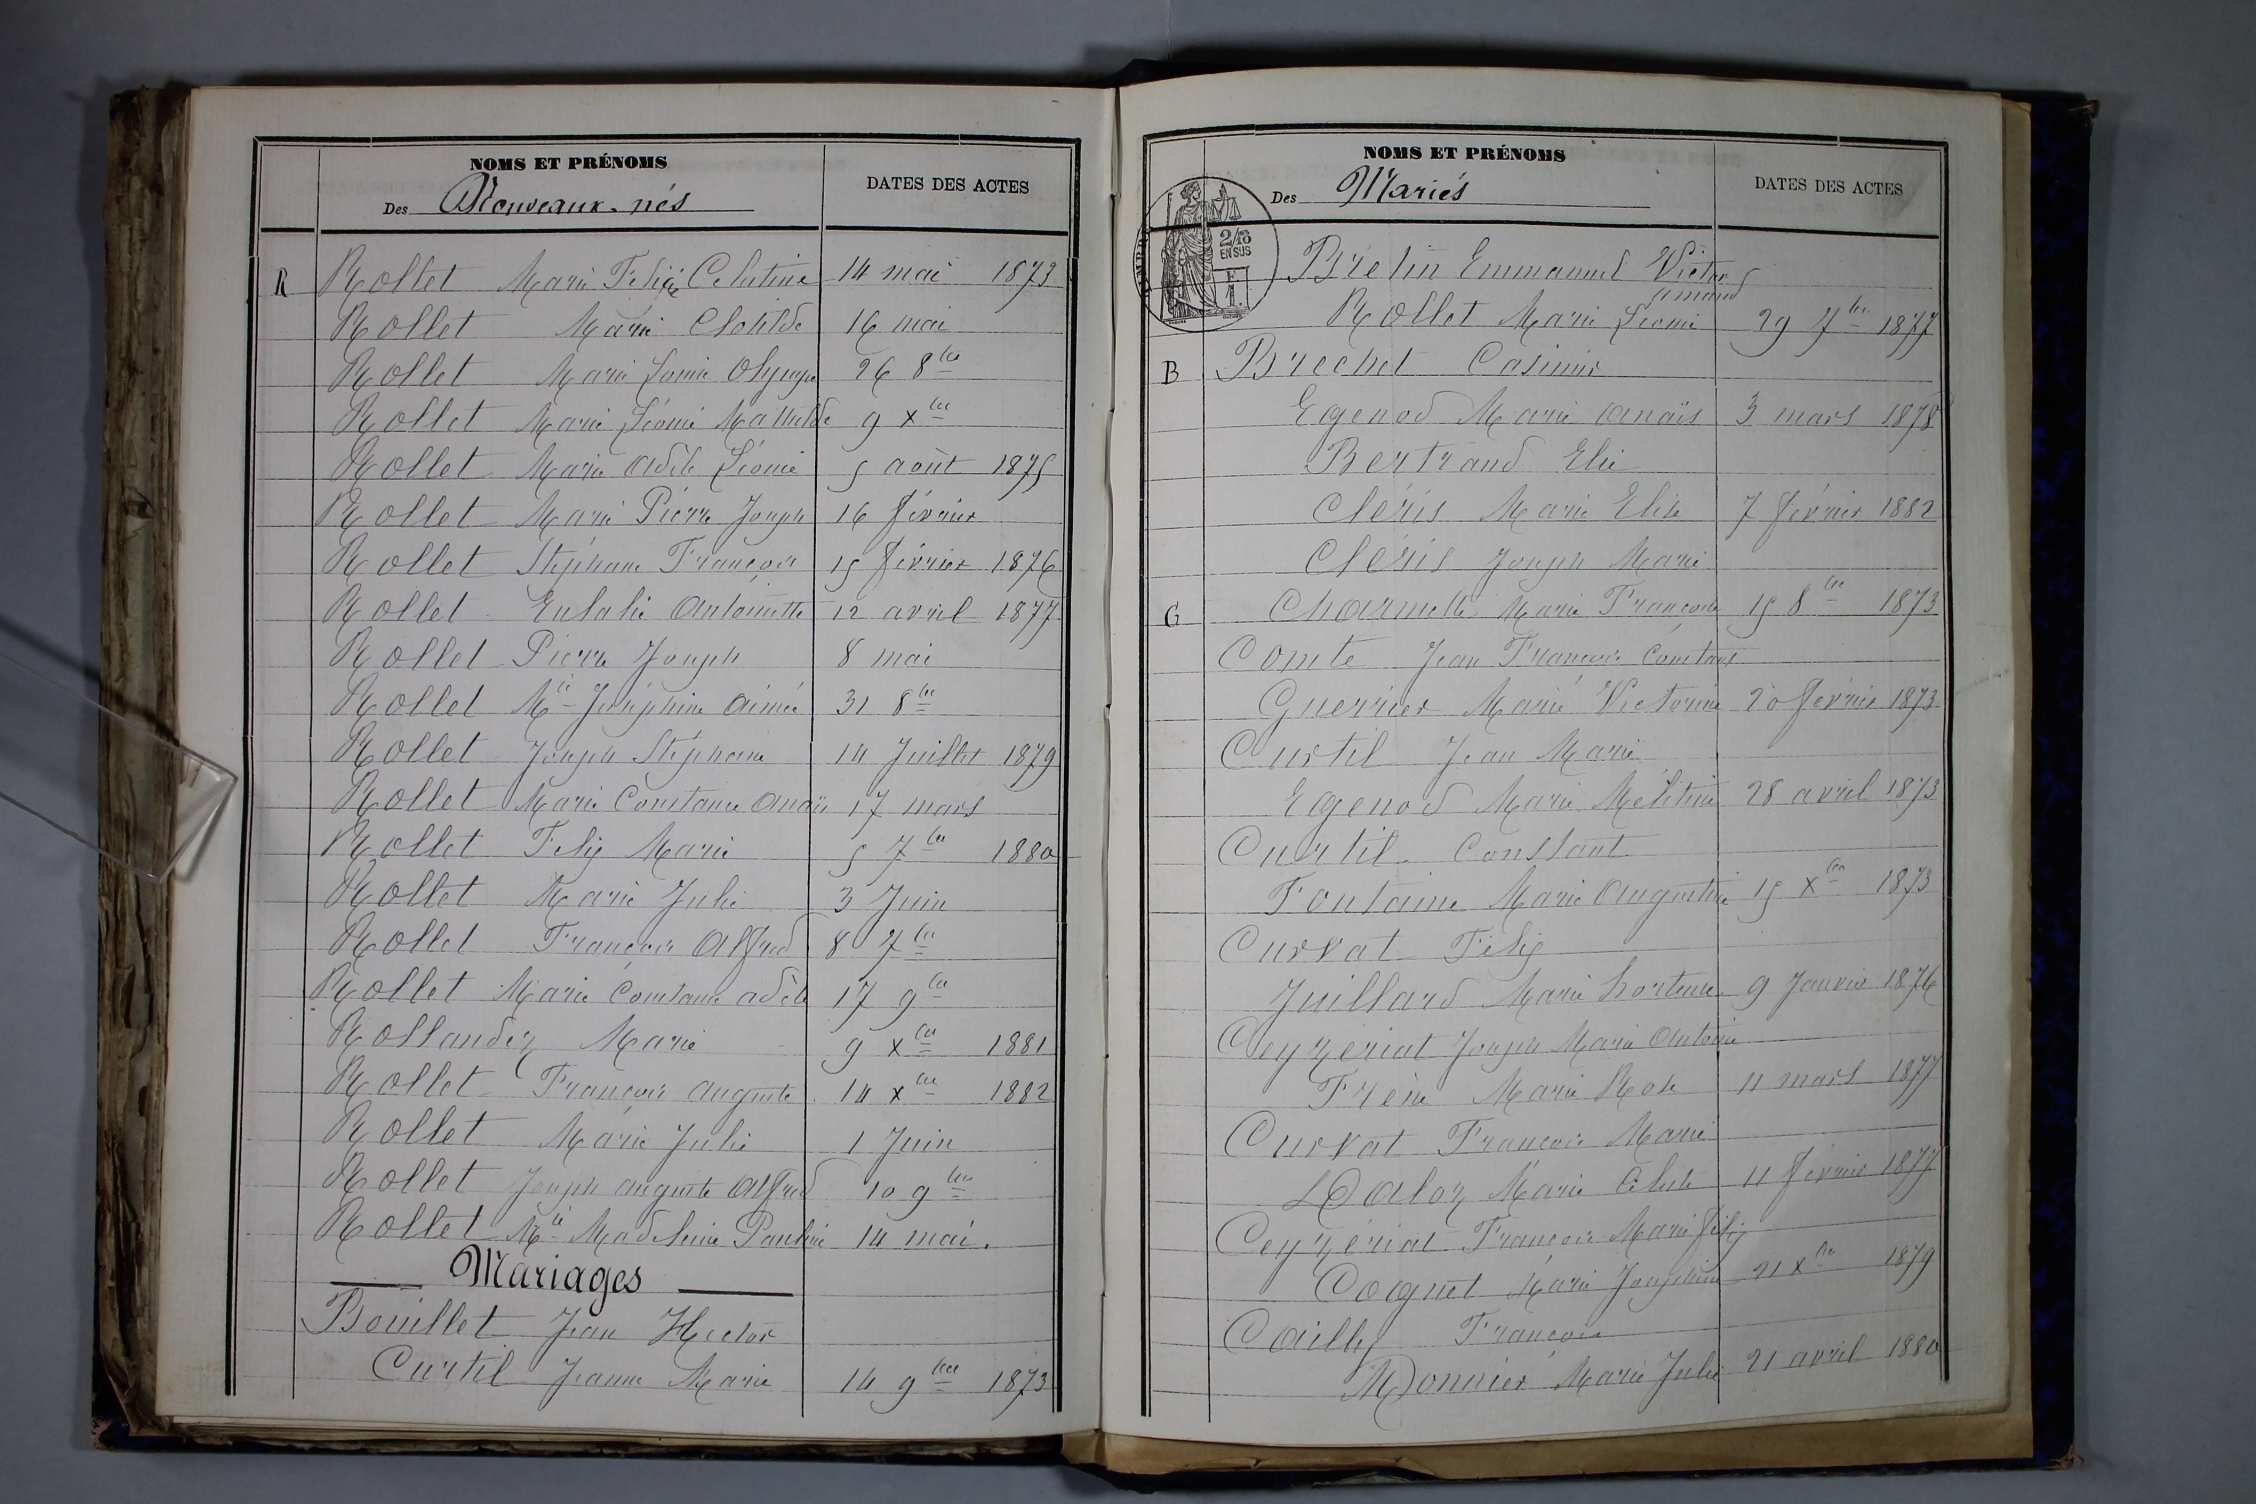 NOMS ET PRÉNOMS
Des Nouveaux-nés
DATES DES ACTES
R Rollet Marie Célestine 14 mai 1873
Rollet Marie Clotilde 16 mai
Rollet Marie Louise Olympe 26 8bre
Rollet Marie Léonie Mathilde 9 xbre
Rollet Marie Adèle Léonie 5 août 1875
Rollet Marie Pierre Joseph 16 février
Rollet Stéphane François 15 février 1876
Rollet Eulalie Antoinette 12 avril 1877
Rollet Pierre Joseph 8 mai
Rollet Mie Joséphine Aimée 31 8bre
Rollet Joseph Stéphane 14 Juillet 1879
Rollet Marie Constance Anaïs 17 mars
Rollet Félix Marie 5 7bre 1880
Rollet Marie Julie 3 Juin
Rollet François Alfred 8 7bre
Rollet Marie Constance adèle 17 9bre
Rollandez Marie 9 xbre 1881
Rollet François Auguste 14 xbre 1882
Rollet Marie Julie 1 Juin
Rollet Joseph Auguste Alfred 10 9bre
Rollet Mie Madeleine Pauline 14 mai.
Mariages
Bouillet Jean Hector
Curtil Jeanne Marie 14 9bre 1873
NOMS ET PRÉNOMS
Des Mariés
DATES DES ACTES
2/10
EN SUS
F
1.
Brelin Emmanuel Victor
Rollet Marie Léonie 29 7bre 1877
B Brechet Casimir
Egenod Marie Anaïs 3 mars 1878
Bertrand Elie
Cléris Marie Elise 7 février 1882
Cléris Joseph Marie
C Charmette Marie Françoise 15 8bre 1873
Comte Jean François Constant
Guerrier Marie Victorine 20 février 1873
Curtil Jean Marie
Egenod Marie Mélitine 28 avril 1873
Curtil Constant
Fontaine Marie Augustine 15 xbre 1873
Curvat Félix
Juillard Marie hortense 9 Janvier 1876
Ceyzériat Joseph Marie Antoine
Frène Marie Rose 11 mars 1877
Curvat François Marie
Daloz Marie Céleste 11 février 1877
Ceyzériat François Marie félix
Cognet Marie Joséphine 21 xbre 1879
Cailly François
Monnier Marie Julie 21 avril 1880